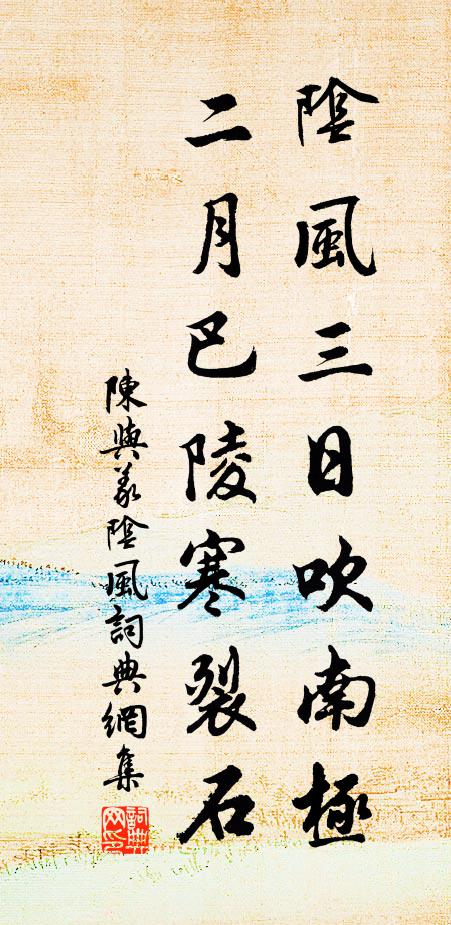 陰風三日吹南極
二月巴陵寒裂石
陳與義陰風詞典網集
詞典網印